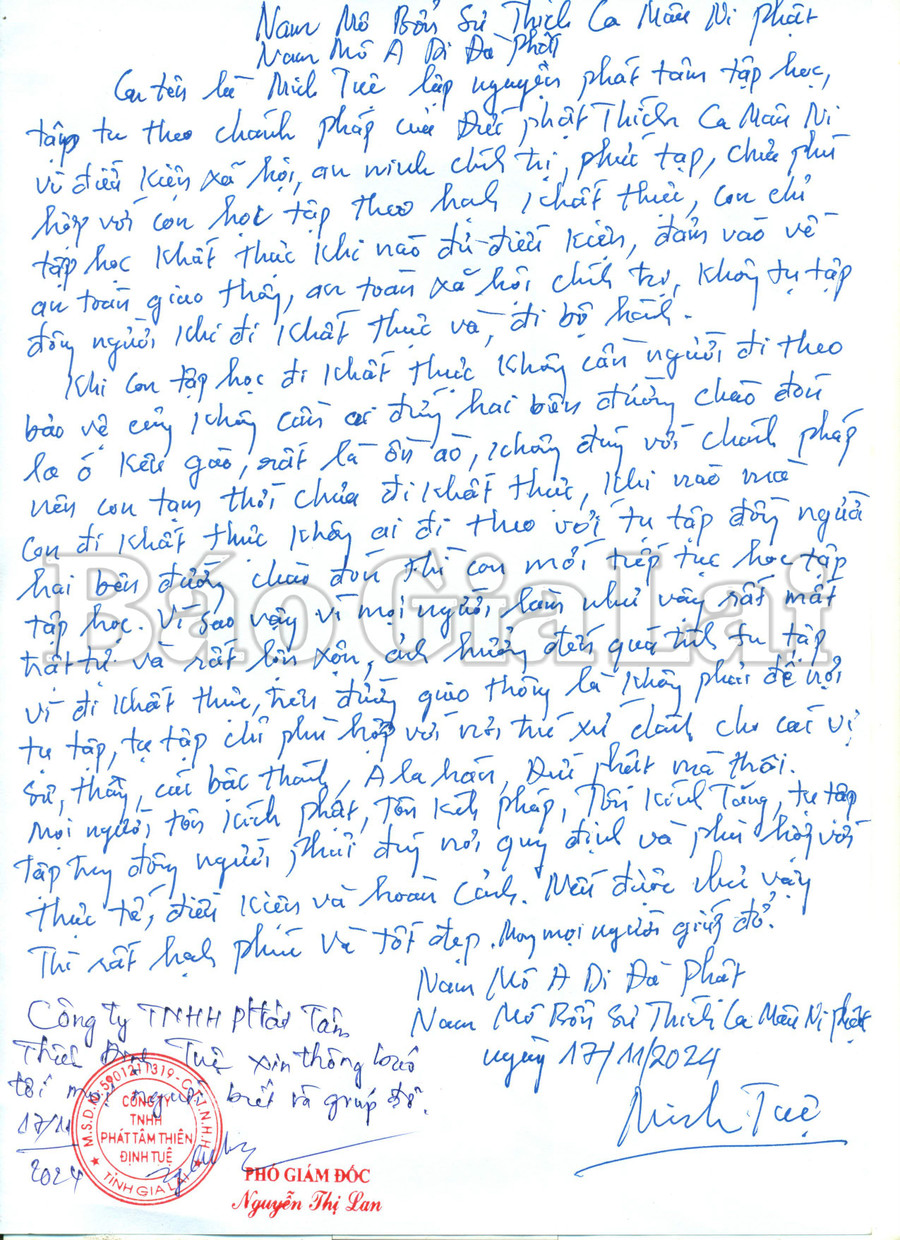 Nam Mô Bổn Sư Thích Ca Mâu Ni Phật
Nam Mô A Di Đà Phật
Con tên là Minh Tuệ lập nguyện phát tâm tập học,
tập tu theo chánh pháp của Đức phật Thích Ca Mâu Ni
vì điều kiện xã hội, an ninh chính trị, phức tạp, chưa phù
hợp với con học tập theo hạnh khất thực, con chỉ
tập học khất thực khi nào đủ điều kiện, đảm vảo về
an toàn giao thông, an toàn xã hội chính trị, không tụ tập
đông người khi đi khất thực và, đi bộ hành.
Khi con tập học đi khất thực không cần người đi theo
bảo vệ cũng không cần ai đứng hai bên đường chào đón
la ó kêu gào, rất là ồn ào, không đúng với chánh pháp
nên con tạm thời chưa đi khất thực, khi nào mà
con đi khất thực không ai đi theo với tụ tập đông người
hai bên đường chào đón thì con mới tiếp tục học tập
tập học. Vì sao vậy vì mọi người làm như vậy rất mất
trật tự và rất lộn xộn, ảnh hưởng đến quá trình tu tập
vì đi khất thực, trên đường giao thông là không phải để nơi
tụ tập, tụ tập chỉ phù hợp với nơi, trú xứ dành cho các vị
sư, thầy, các bậc thánh, A la hán, Đức phật mà thôi.
Mọi người, tôn kính phật, Tôn kính pháp, Tôn kính Tăng, tụ tập
tập trung đông người phải đúng nơi quy định và phù hợp với
thực tế, điều kiện và hoàn cảnh. Nếu được như vậy
Thì rất hạnh phúc và tốt đẹp. Mong mọi người giúp đỡ.
Nam Mô A Di Đà Phật
Nam Mô Bổn Sư Thích Ca Mâu Ni phật
ngày 17/11/2024
Minh Tuệ
Công ty TNHH Phát Tâm
Thiền Định Tuệ xin thông báo
tới mọi người biết và giúp đỡ.
17/11
2024
M.S.D.N:5901211319-C.T.T.N.H.H
CÔNG TY
TNHH
PHÁT TÂM THIỀN
ĐỊNH TUỆ
TỈNH GIA LAI
PHÓ GIÁM ĐỐC
Nguyễn Thị Lan
Báo Gia Lai